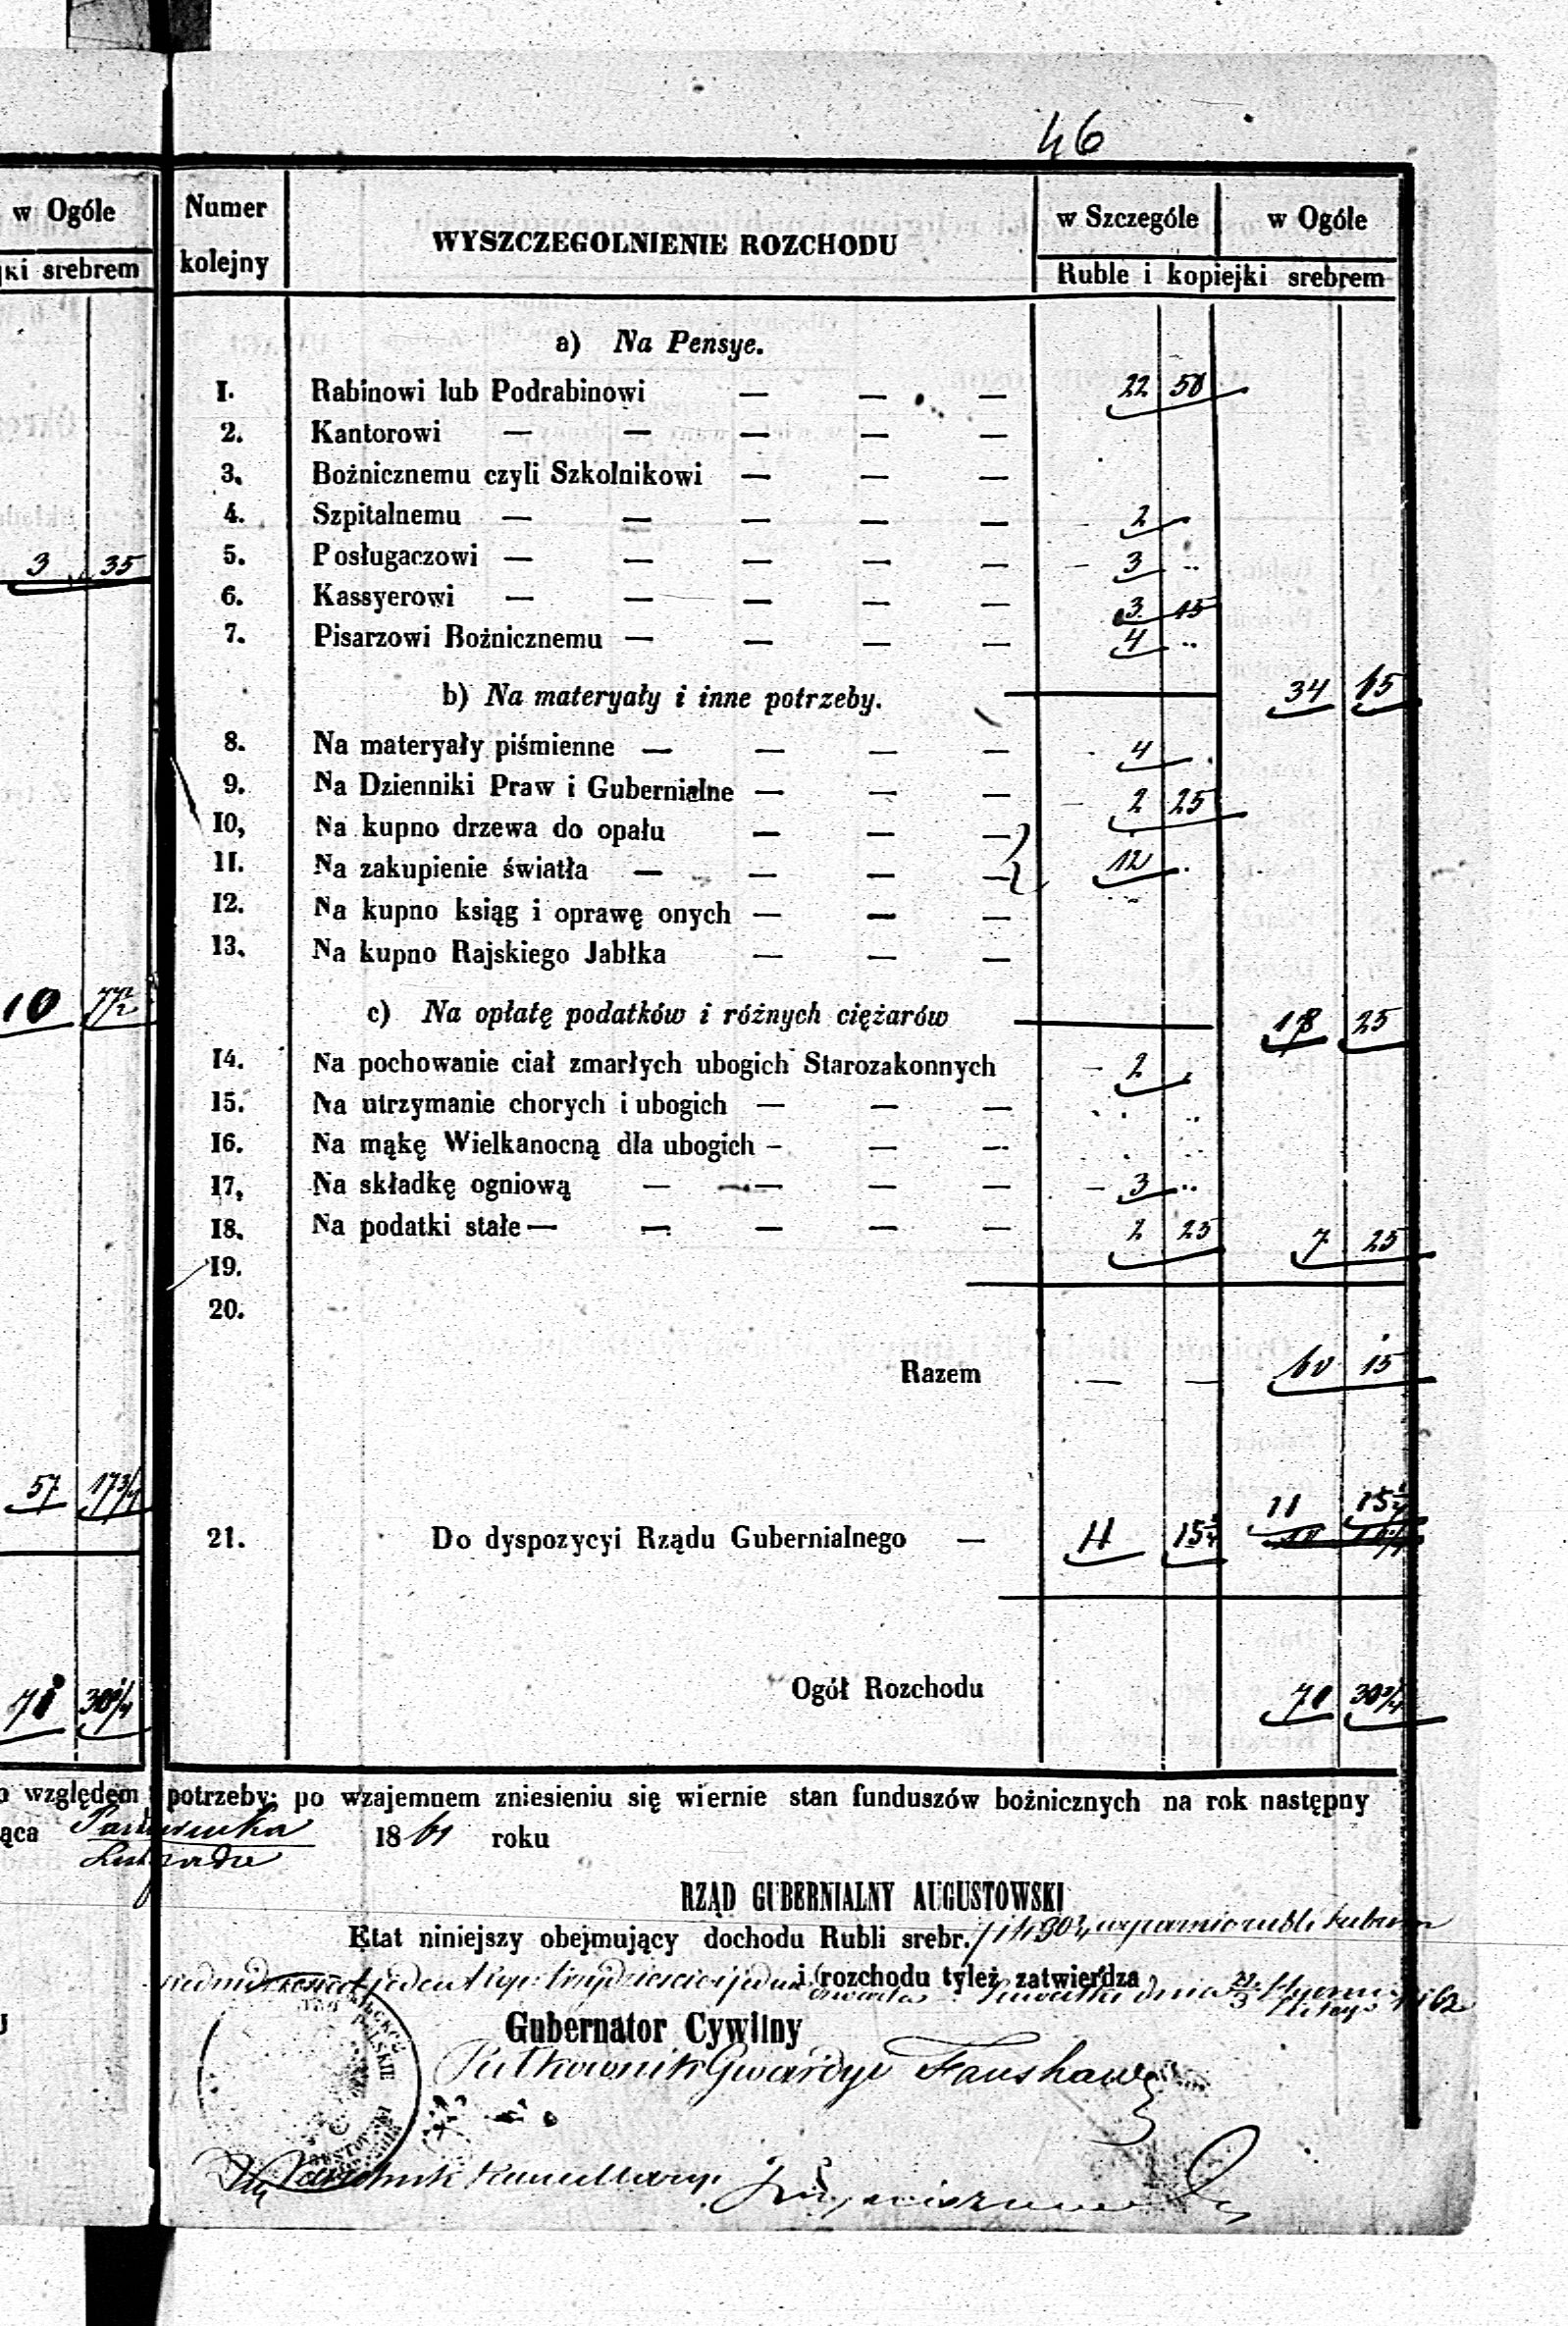 46
w Ogóle
jki srebrem
3 35
10 77½
57 17¾
71 30¾
Numer kolejny WYSZCZEGOLNIENIE ROZCHODU w Szczególe w Ogóle
Ruble i kopiejki srebrem
a) Na Pensye.
1. Rabinowi lub Podrabinowi — — — 22 50
2. Kantorowi — — — — —
3. Bożnicznemu czyli Szkolnikowi — — —
4. Szpitalnemu — — — — — 2
5. Posługaczowi — — — — — 3 ..
6. Kassyerowi — — — — — 3 15
7. Pisarzowi Bożnicznemu — — — — 4 ..
b) Na materyały i inne potrzeby. 34 65
8. Na materyały piśmienne — — — — 4 .
9. Na Dzienniki Praw i Gubernialne — — — 2 25
10, Na kupno drzewa do opału — — —
11. Na zakupienie światła — — — — 12 .
12. Na kupno ksiąg i oprawę onych — — —
13. Na kupno Rajskiego Jabłka — — —
c) Na opłatę podatków i różnych ciężarów 18 25
14. Na pochowanie ciał zmarłych ubogich Starozakonnych — 2 .
15. Na utrzymanie chorych i ubogich — — —
16. Na mąkę Wielkanocną dla ubogich — — —
17, Na składkę ogniową — — — — 3 ..
18. Na podatki stałe — — — — — 2 25 7 25
19.
20.
Razem — — 60 15
11 15¾
21. Do dyspozycyi Rządu Gubernialnego — 11 15¾
Ogół Rozchodu 71 30¾
o względem potrzeby; po wzajemnem zniesieniu się wiernie stan funduszów bożnicznych na rok następny
ąca 1861 roku
RZĄD GUBERNIALNY AUGUSTOWSKI
Etat niniejszy obejmujący dochodu Rubli srebr. 71 k 30¾
siedmdziesiąt jeden i rozchodu tyleż zatwierdza
Gubernator Cywilny
Pułkownik Gwardyi
Naczelnik Kancellaryi